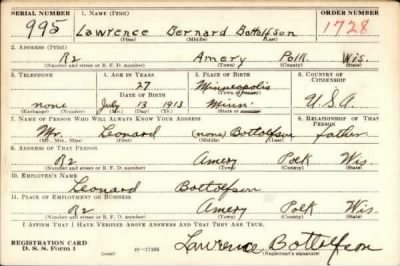 SERIAL NUMBER 1. NAME (Print) ORDER NUMBER
995 Lawrence Bernard Bottolfson 1728
(First) (Middle) (Last)
2. ADDRESS (Print)
R2 Amery Polk Wis.
(Number and street or R. F. D. number) (Town) (County) (State)
3. TELEPHONE 4. AGE IN YEARS 5. PLACE OF BIRTH 6. COUNTRY OF CITIZENSHIP
27 Minneapolis
DATE OF BIRTH (Town or county)
none July 13 1913 Minn. U.S.A.
(Exchange) (Number) (Mo.) (Day) (Yr.) (State or country)
7. NAME OF PERSON WHO WILL ALWAYS KNOW YOUR ADDRESS 8. RELATIONSHIP OF THAT PERSON
Mr. Leonard (none) Bottolfson father
(Mr., Mrs., Miss) (First) (Middle) (Last)
9. ADDRESS OF THAT PERSON
R2 Amery Polk Wis.
(Number and street or R. F. D. number) (Town) (County) (State)
10. EMPLOYER'S NAME
Leonard Bottolfson
11. PLACE OF EMPLOYMENT OR BUSINESS
R2 Amery Polk Wis.
(Number and street or R. F. D. number) (Town) (County) (State)
I AFFIRM THAT I HAVE VERIFIED ABOVE ANSWERS AND THAT THEY ARE TRUE.
REGISTRATION CARD
D. S. S. Form 1 Lawrence Bottolfson
(over) (Registrant's signature)